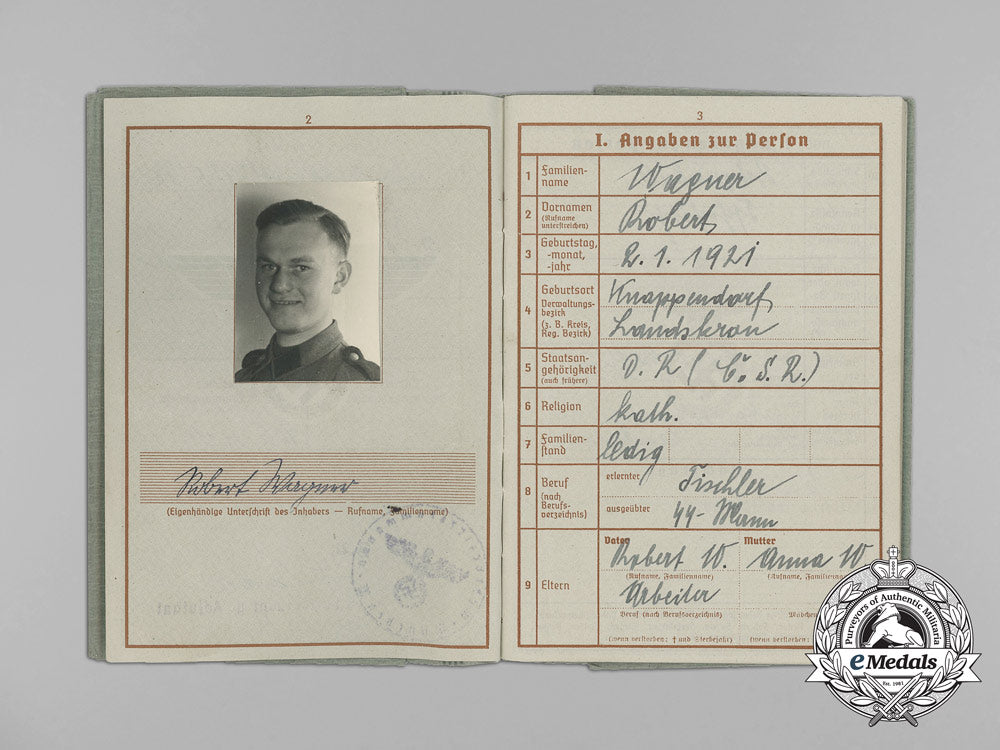 2
Robert Wagner
(Eigenhändige Unterschrift des Inhabers — Rufname, Familienname)
3
I. Angaben zur Person
1 Familien-
name
Wagner
2 Vornamen
(Rufname
unterstreichen)
Robert
3 Geburtstag,
-monat,
-jahr
2. 1. 1921
4 Geburtsort
Verwaltungs-
bezirk
(z. B. Kreis,
Reg. Bezirk)
Knappendorf,
Landskron
5 Staatsan-
gehörigkeit
(auch frühere)
D. R (Č. S. R.)
6 Religion
kath.
7 Familien-
stand
ledig
8 Beruf
(nach
Berufs-
verzeichnis)
erlernter Tischler
ausgeübter SS-Mann
9 Eltern
Vater Mutter
Robert W. Anna W
(Rufname, Familienname) (Rufname, Familienn
Arbeiter
Beruf (nach Berufsverzeichnis) Mädchen
(wenn verstorben: † und Sterbejahr) (wenn verstorben:
Purveyors of Authentic Militaria
eMedals
Est. 1981